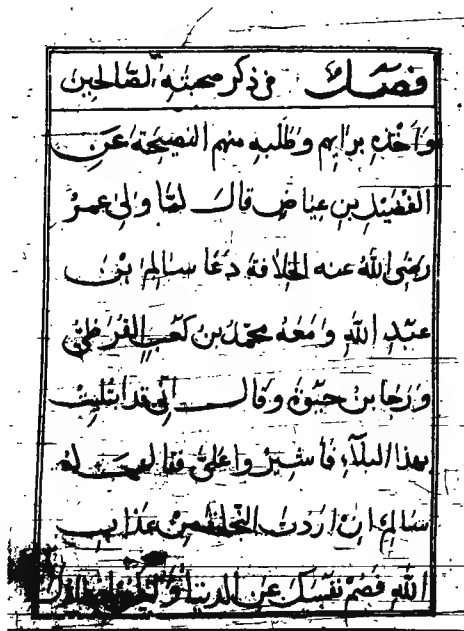 فصل في ذكر صحبته الصالحين
واخذه برايهم وطلبه منهم النصيحة عن
الفضيل بن عياض قال لما ولي عمر
رضي الله عنه الخلافة دعا سالم بن
عبد الله ومعه محمد بن كعب القرظي
ورجا بن حيوة وقال اني قد ابتليت
بهذا البلاء فاشيروا علي فقال له
سالم ان اردت النجاة من عذاب
الله فصم نفسك عن الدنيا وليكن